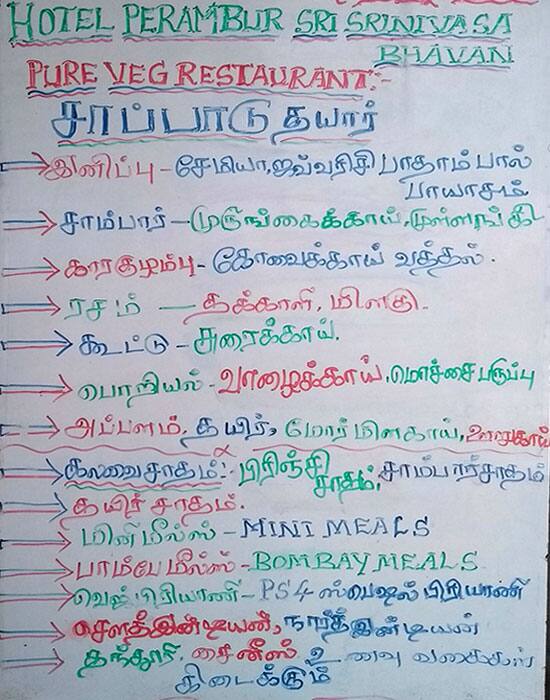 HOTEL PERAMBUR SRI SRINIVASA
BHAVAN
PURE VEG RESTAURANT:-
சாப்பாடு தயார்
இனிப்பு - சேமியா, ஜவ்வரிசி பாதாம்பால்
பாயாசம்
சாம்பார் - முருங்கைக்காய், முள்ளங்கி
காரகுழம்பு - கோவைக்காய் வத்தல்.
ரசம் - தக்காளி, மிளகு.
கூட்டு - சுரைக்காய்.
பொறியல் - வாழைக்காய், மொச்சை பருப்பு
அப்பளம், தயிர், மோர் மிளகாய், ஊறுகாய்
கலவை சாதம்:- பிரிஞ்சி சாதம், சாம்பார்சாதம்
தயிர் சாதம்.
மினி மீல்ஸ் - MINI MEALS
பாம்பே மீல்ஸ் - BOMBAY MEALS
வெஜ் பிரியாணி - PS4 ஸ்பெஷல் பிரியாணி
சௌத்இன்டியன், நார்த்இன்டியன்
தந்தூரி, சைனீஸ் உணவு வகைகள்
கிடைக்கும்